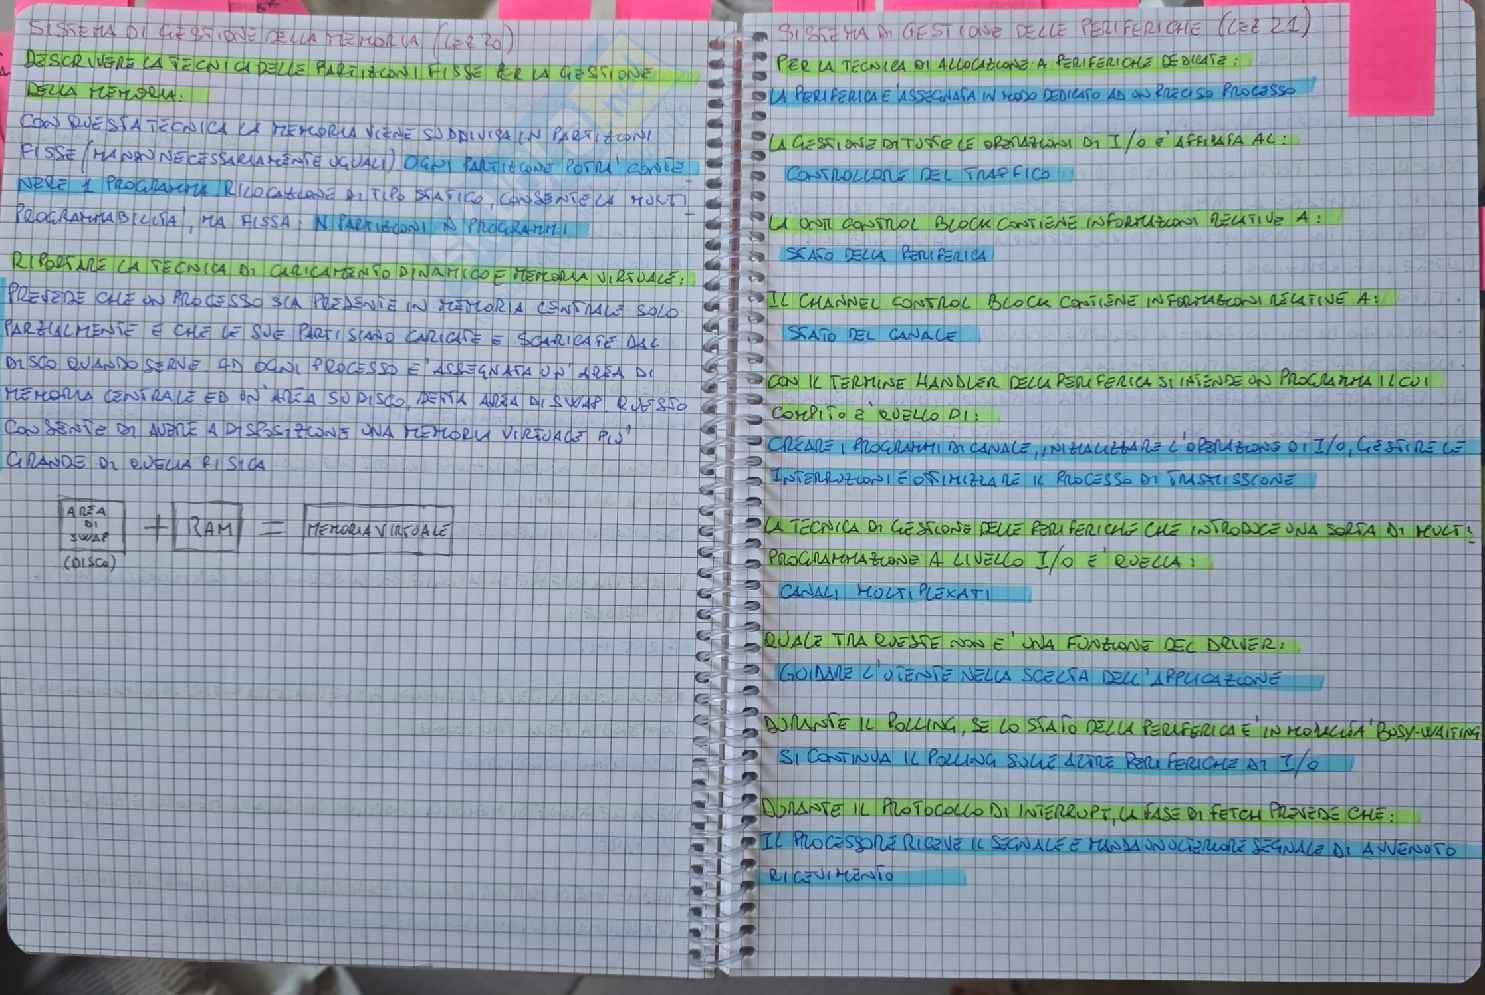 SISTEMA DI GESTIONE DELLA MEMORIA (LEZ 20)
DESCRIVERE LA TECNICA DELLE PARTIZIONI FISSE PER LA GESTIONE
DELLA MEMORIA:
CON QUESTA TECNICA LA MEMORIA VIENE SUDDIVISA IN PARTIZIONI
FISSE (MA NON NECESSARIAMENTE UGUALI) OGNI PARTIZIONE POTRA' CONTE_
NERE 1 PROGRAMMA RILOCAZIONE DI TIPO STATICO, CONSENTE LA MULTI_
PROGRAMMABILITA', MA FISSA: N PARTIZIONI N PROGRAMMI
RIPORTARE LA TECNICA DI CARICAMENTO DINAMICO E MEMORIA VIRTUALE:
PREVEDE CHE UN PROCESSO SIA PRESENTE IN MEMORIA CENTRALE SOLO
PARZIALMENTE E CHE LE SUE PARTI SIANO CARICATE E SCARICATE DAL
DISCO QUANDO SERVE AD OGNI PROCESSO E' ASSEGNATA UN'AREA DI
MEMORIA CENTRALE ED UN'AREA SU DISCO, DETTA AREA DI SWAP QUESTO
CONSENTE DI AVERE A DISPOSIZIONE UNA MEMORIA VIRTUALE PIU'
GRANDE DI QUELLA FISICA
AREA
DI
SWAP
(DISCO)
+ RAM = MEMORIA VIRTUALE
SISTEMA DI GESTIONE DELLE PERIFERICHE (LEZ 21)
PER LA TECNICA DI ALLOCAZIONE A PERIFERICHE DEDICATE:
LA PERIFERICA E' ASSEGNATA IN MODO DEDICATO AD UN PRECISO PROCESSO
LA GESTIONE DI TUTTE LE OPERAZIONI DI I/O E' AFFIDATA AL:
CONTROLLORE DEL TRAFFICO
LA UNIT CONTROL BLOCK CONTIENE INFORMAZIONI RELATIVE A:
STATO DELLA PERIFERICA
IL CHANNEL CONTROL BLOCK CONTIENE INFORMAZIONI RELATIVE A:
STATO DEL CANALE
CON IL TERMINE HANDLER DELLA PERIFERICA SI INTENDE UN PROGRAMMA IL CUI
COMPITO E' QUELLO DI:
CREARE I PROGRAMMI DI CANALE, INIZIALIZZARE L'OPERAZIONE DI I/O, GESTIRE LE
INTERRUZIONI E OTTIMIZZARE IL PROCESSO DI TRASMISSIONE
LA TECNICA DI GESTIONE DELLE PERIFERICHE CHE INTRODUCE UNA SORTA DI MULTI_
PROGRAMMAZIONE A LIVELLO I/O E' QUELLA:
CANALI MULTIPLEXATI
QUALE TRA QUESTE NON E' UNA FUNZIONE DEL DRIVER:
GUIDARE L'UTENTE NELLA SCELTA DELL'APPLICAZIONE
DURANTE IL POLLING, SE LO STATO DELLA PERIFERICA E' IN MODALITA' BUSY-WAITING
SI CONTINUA IL POLLING SULLE ALTRE PERIFERICHE DI I/O
DURANTE IL PROTOCOLLO DI INTERRUPT, LA FASE DI FETCH PREVEDE CHE:
IL PROCESSORE RICEVE IL SEGNALE E MANDA UN ULTERIORE SEGNALE DI AVVENUTO
RICEVIMENTO